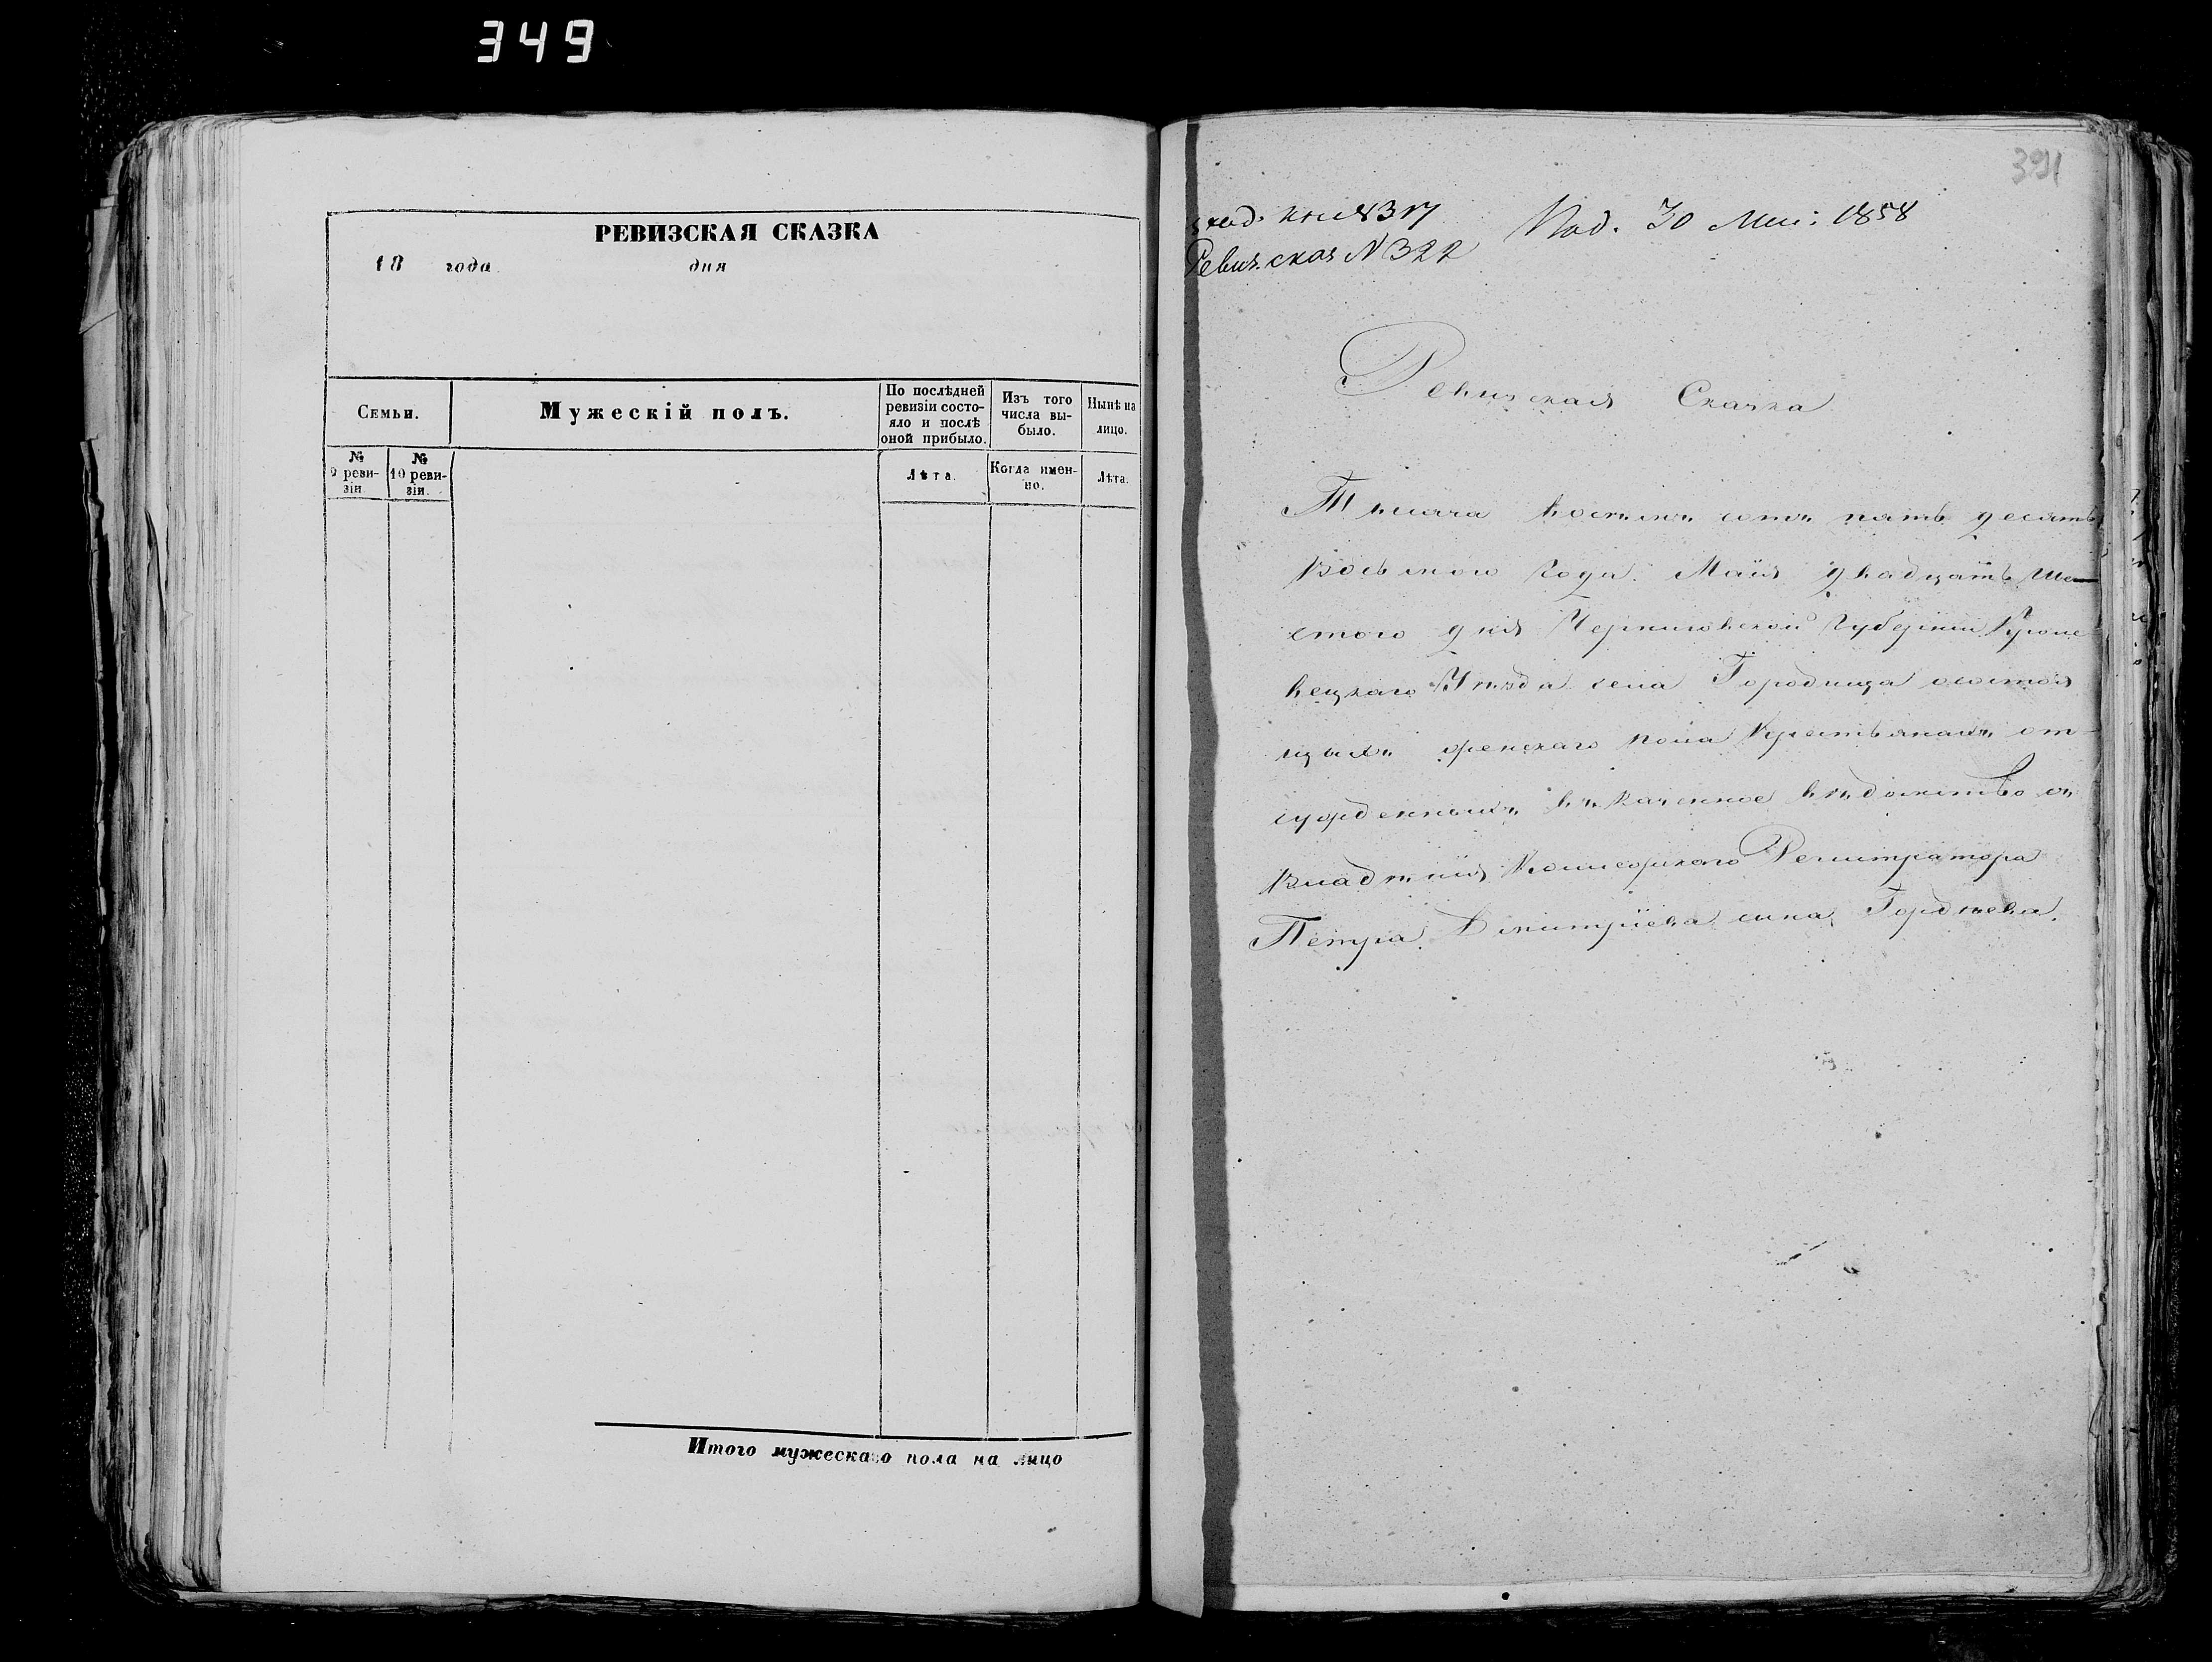 349
РЕВИЗСКАЯ СКАЗКА
18 года дня
Семьи.
Мужескій полъ.
По послѣдней ревизіи состо-
яло и послѣ
оной прибыло.
Изъ того
числа вы-
было.
Нынѣ на
лицо.
№
9 реви-
зіи
№
10 реви-
зіи.
Лѣта.
Когда имен-
но.
Лѣта.
Итого мужескаго пола на лицо
391
кни 8317
Ревиз. сказ N 322
Под. 30 Маи: 1858
Ревизская Сказка
Тысяча восемъ сотъ пять десятъ
восьмого года. Маія двадцать ше-
стого дня Черниговской Губерніи Кроле-
вецкаго Уѣзда села Городища состоя
щыхъ женскаго пола Крестьянахъ от-
сужденныхъ въ казенное вѣдомство съ
владѣнія Колежскаго Регистратора
Петра Димитріева сына Гордѣева.